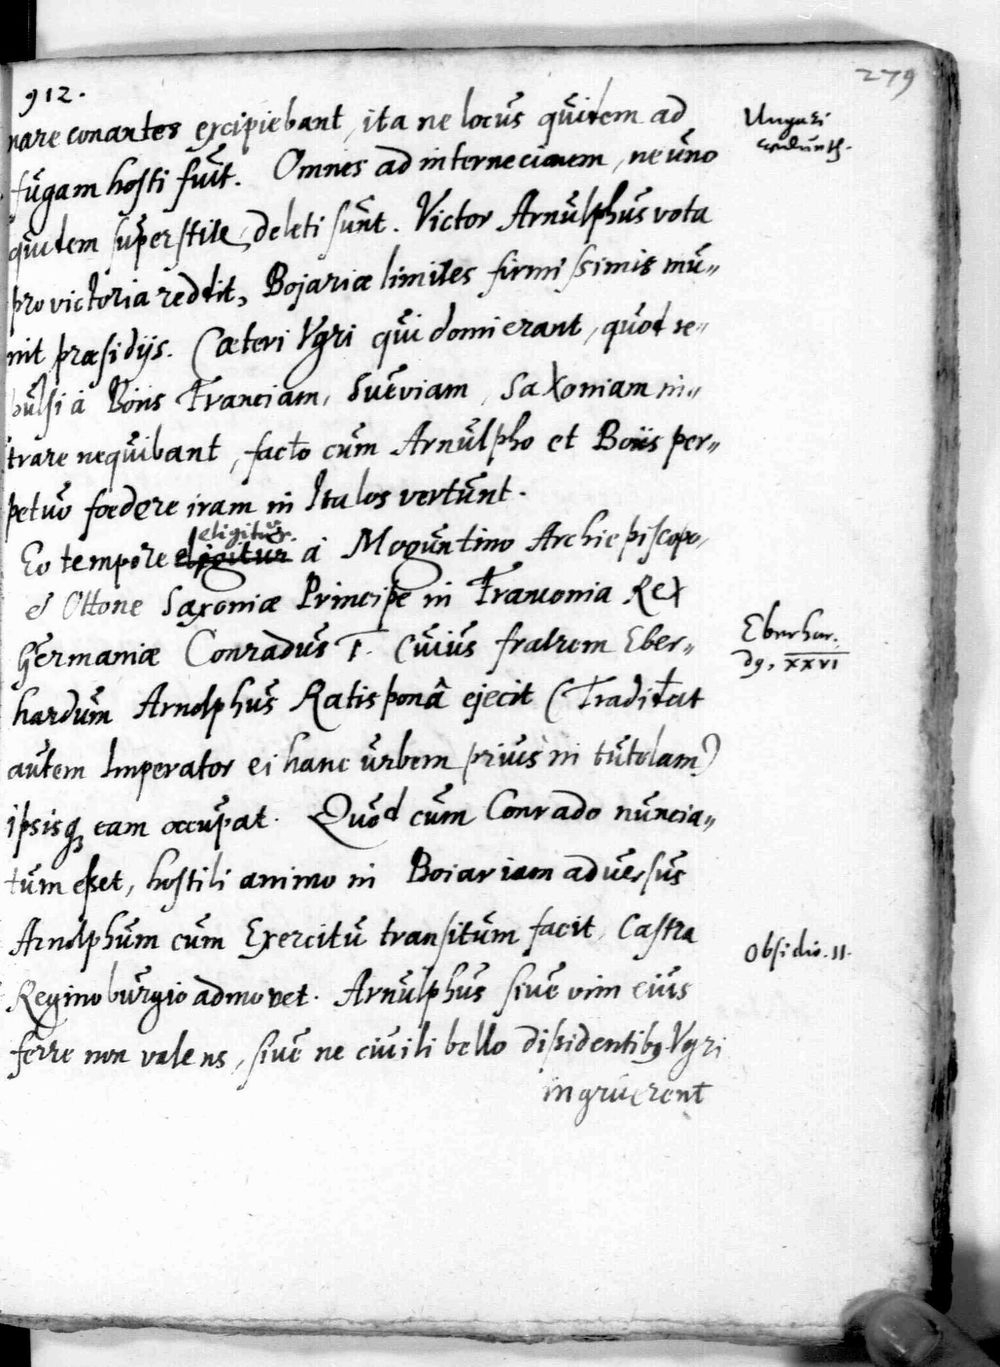 912.
279
nare conantes excipiebant, ita ne locus quidem ad
fugam hosti fuit. Omnes ad internecionem, ne uno
quidem superstite, deleti sunt. Victor Arnulphus vota
pro victoria reddit, Bojariæ limites firmissimis mu„
nit præsidijs. Cæteri Vgri qui domi erant, quod re„
pulsi à Boiis Franciam, Sueviam, Saxoniam in„
trare nequibant, facto cum Arnulpho et Boiis per„
petuo foedere iram in Italos vertunt.
eligitur.
Eo tempore eligitur à Moguntino Archiepiscopo,
& Ottone Saxoniæ Principe in Franconia Rex
Germaniæ Conradus I. Cuius fratrem Eber„
hardum Arnolphus Ratisponâ ejecit (Tradiderat
autem Imperator ei hanc urbem prius in tutelam)
ipsisq; eam occupat. Quod cum Conrado nuncia„
tum esset, hostili animo in Boiariam adversus
Arnolphum cum Exercitu transitum facit, Castra
Reginoburgio admovet. Arnulphus sive vim eius
ferre non valens, sive ne civili bello dissidentibq Vgri
ingruerent
Ungari
Eberhar.
dq. XXVI
Obsidio. II.